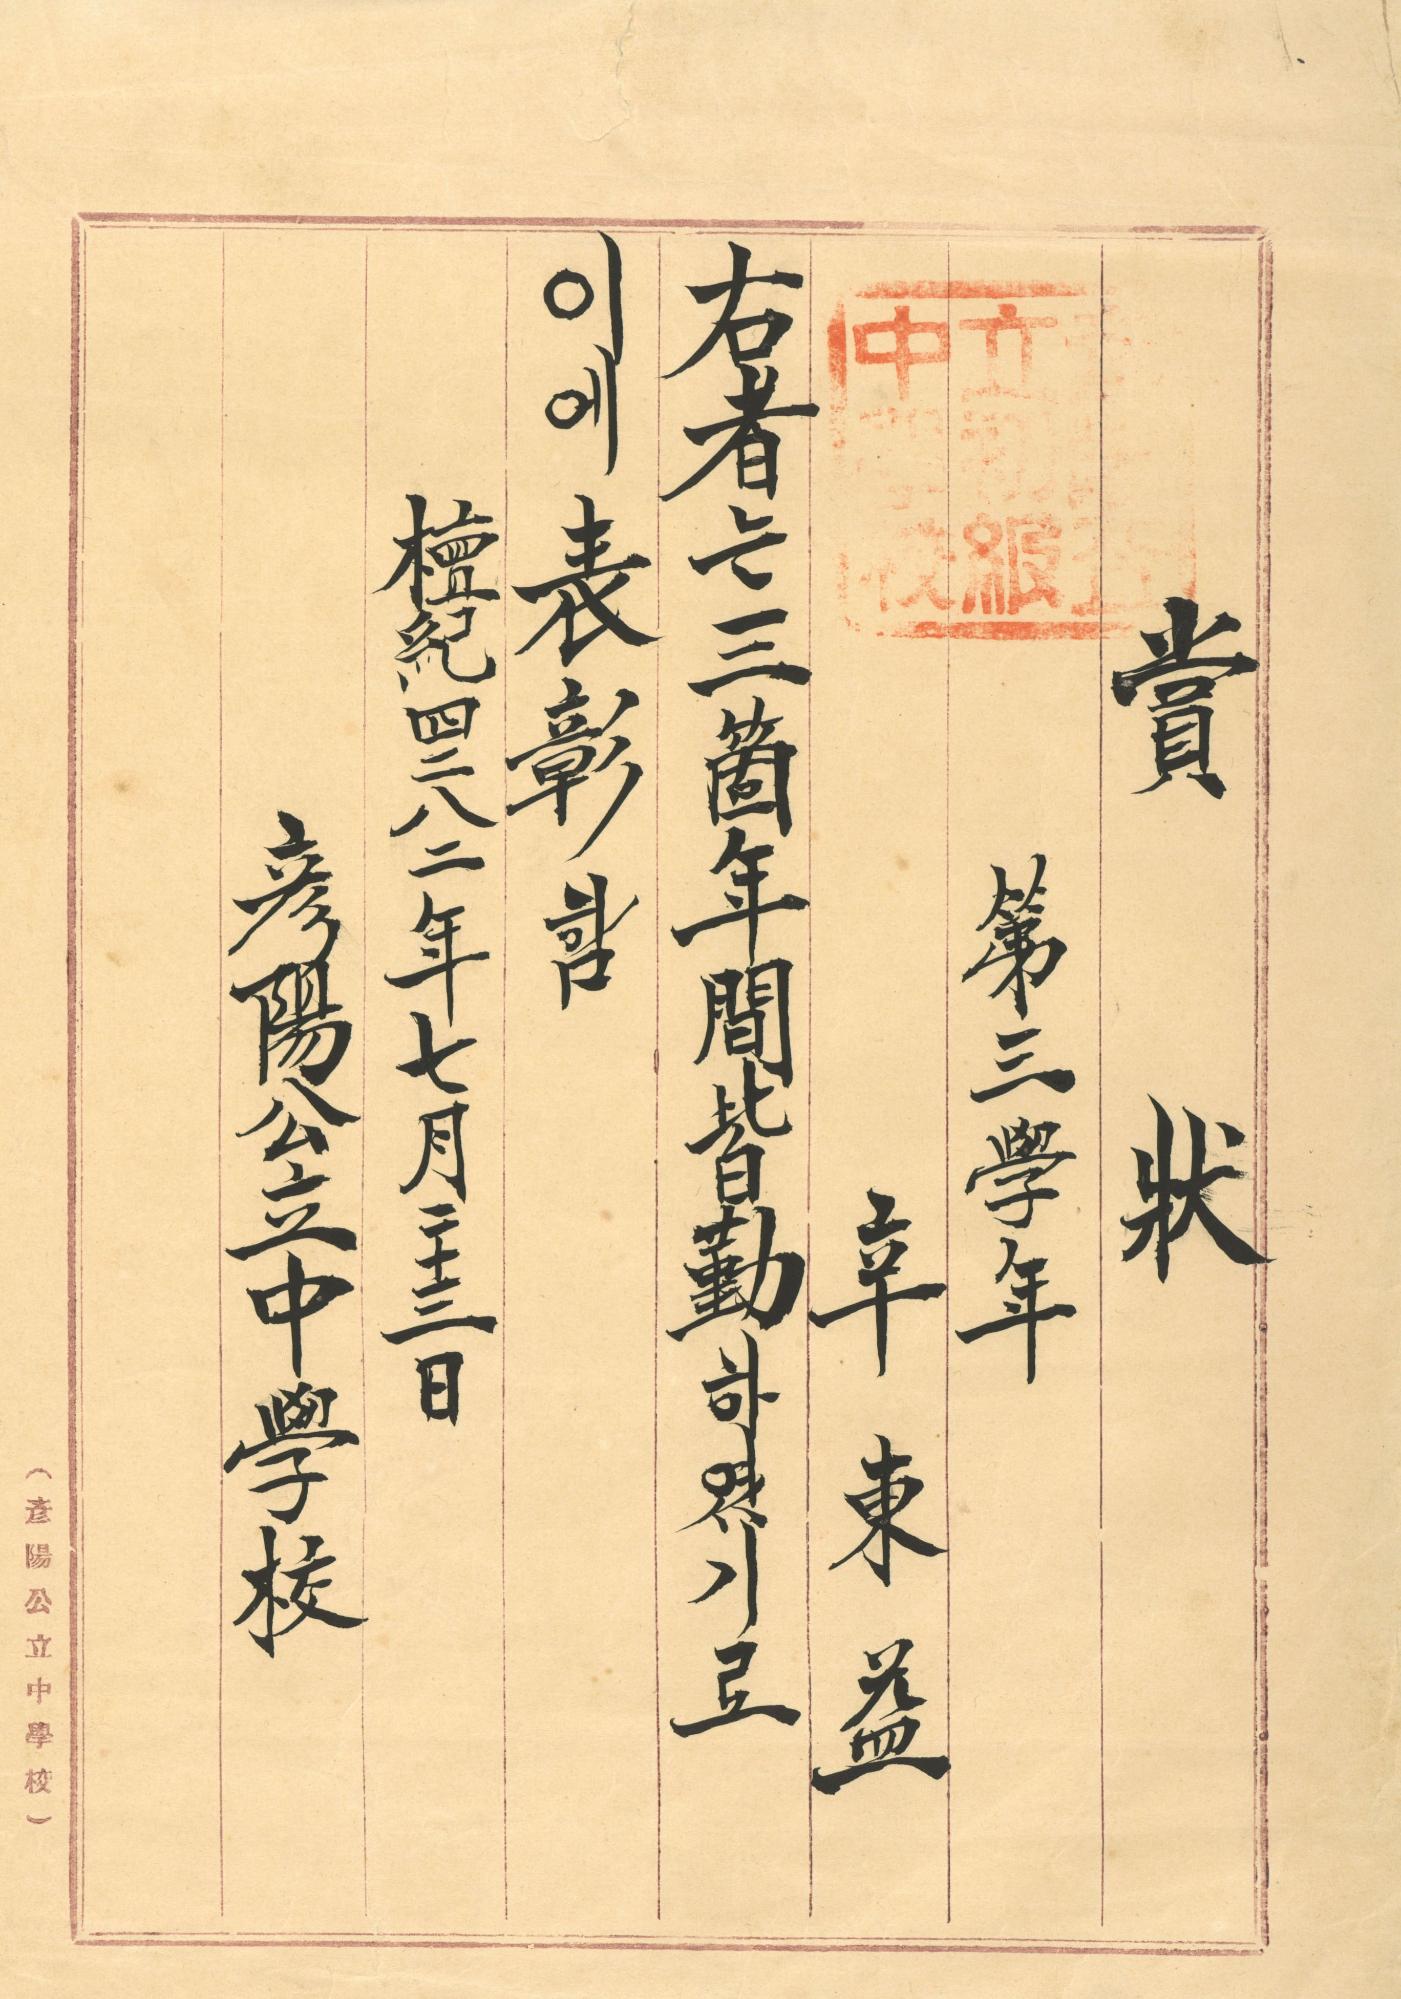 賞狀
第三學年
辛東益
右者는三箇年間皆勤하였기로
이에表彰함
檀紀四二八二年七月二十三日
彦陽公立中學校
(彦陽公立中學校)
立
中